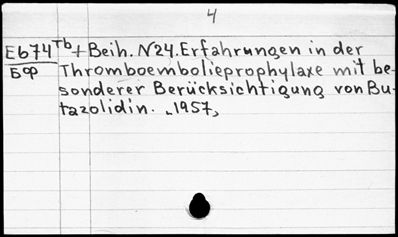 4
Еб74 Tb + Beih. N24. Erfahrungen in der
БФ Thromboembolieprophylaxe mit be-
sonderer Berücksichtigung von Bu-
tazolidin. „1957„